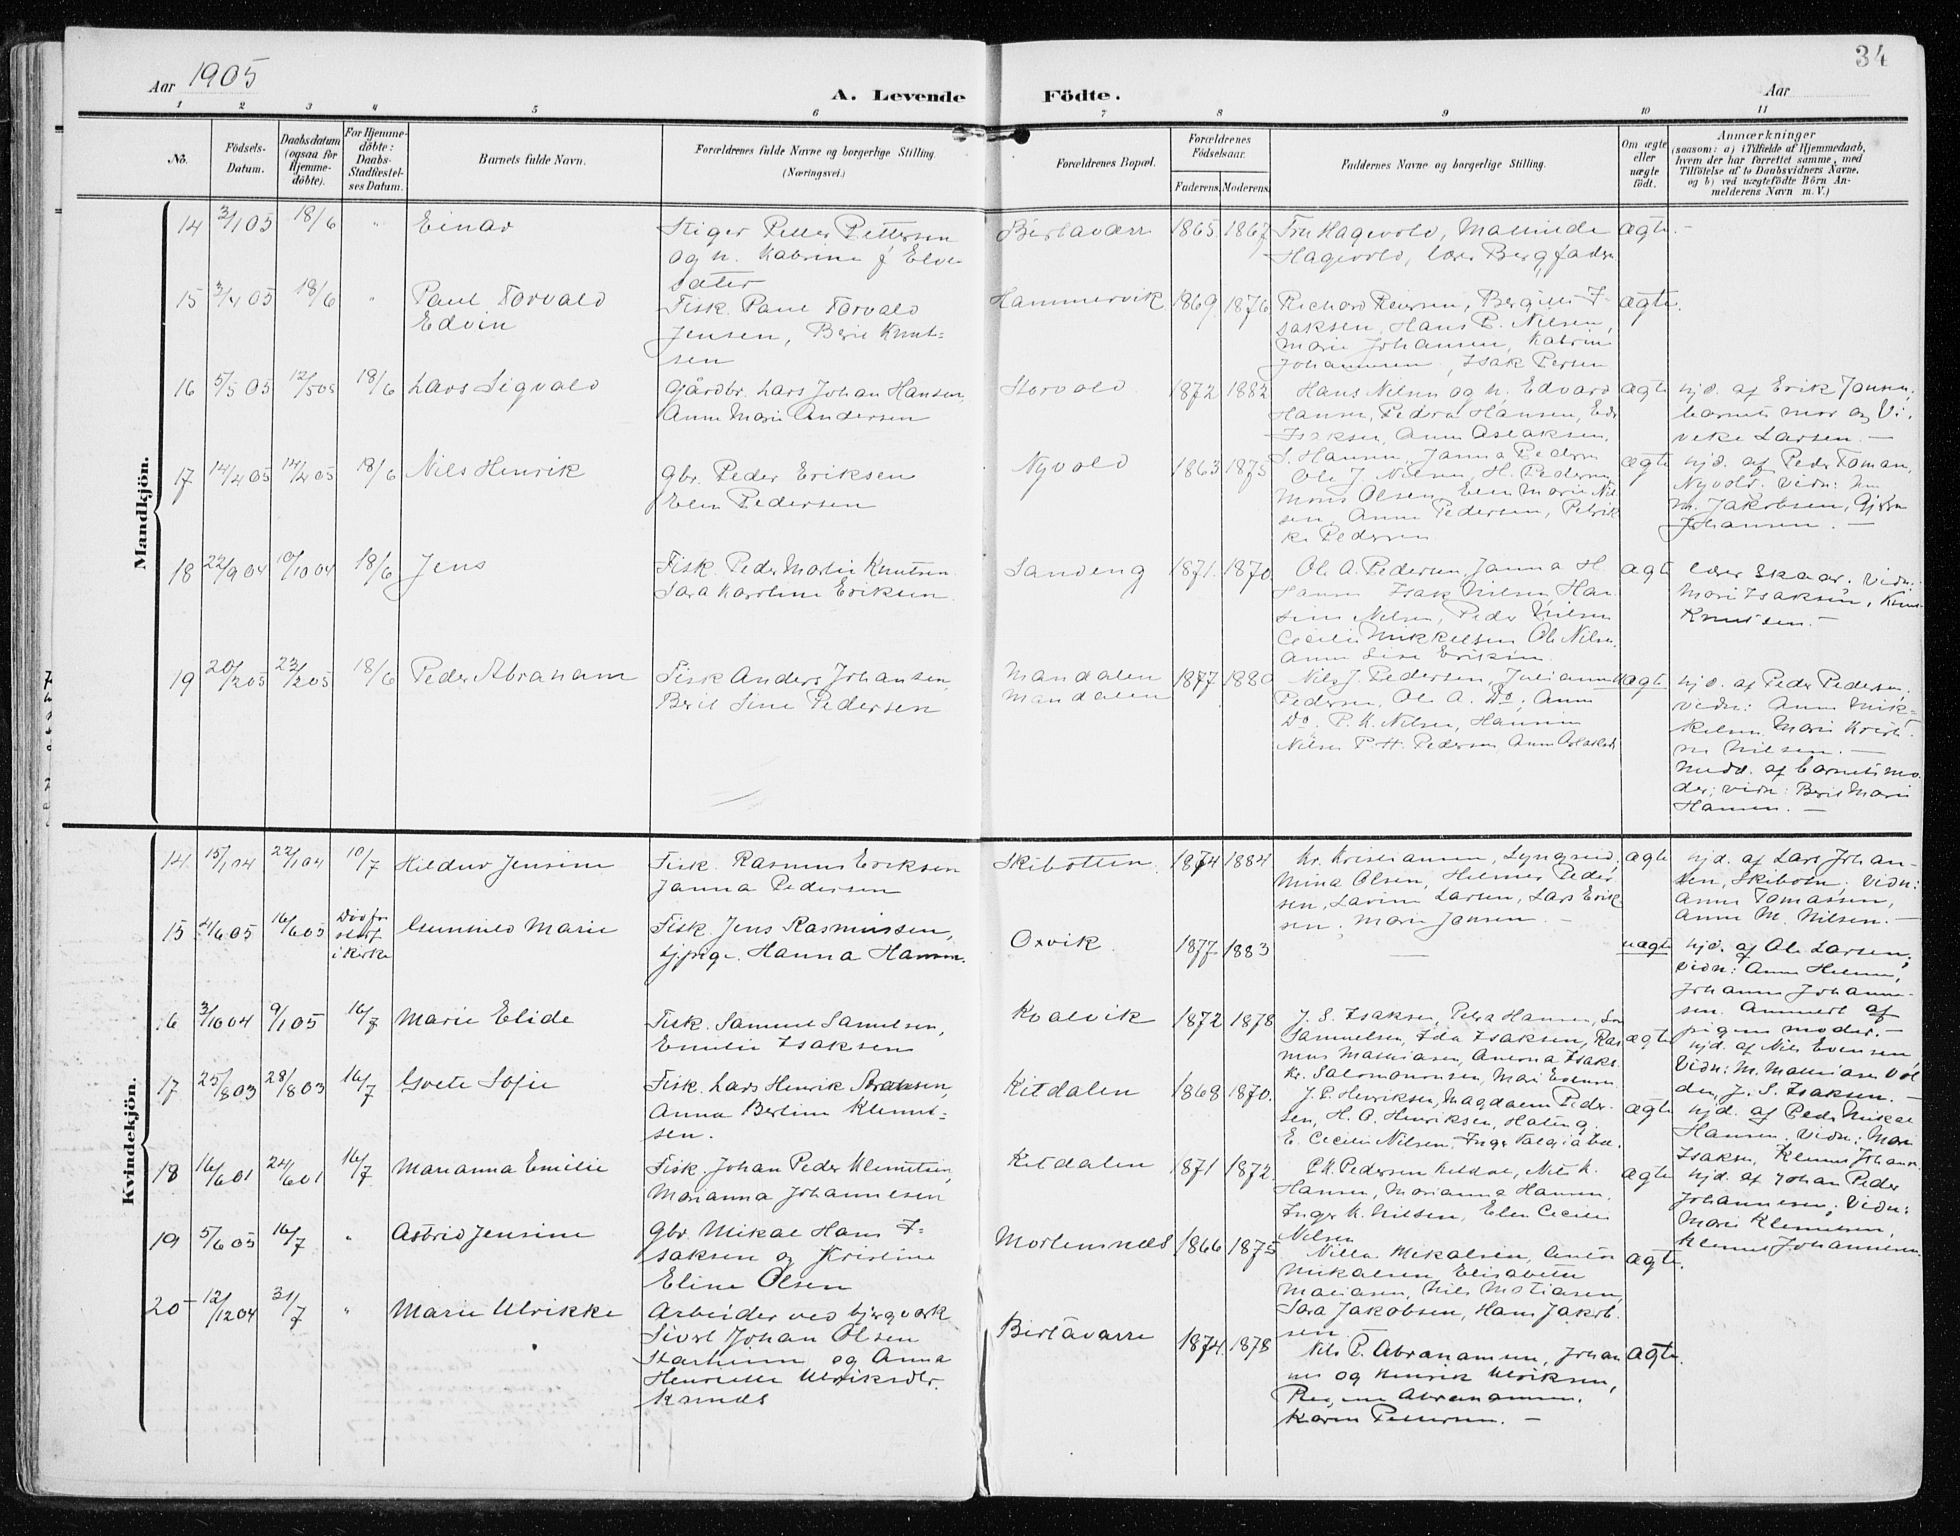 34
Aar 1905
A. Levende Födte.
Aar
1 2 3 4 5 6 7 8 9 10 11
No.
Födsels-Datum.
Daabsdatum (ogsaa for Hjemme-döbte).
For Hjemme-döbte: Daabs-Stadfæstel-ses Datum.
Barnets fulde Navn.
Forældrenes fulde Navne og borgerlige Stilling. (Næringsvei.)
Forældrenes Bopæl.
Forældrenes Födselsaar.
Faderens. Moderens.
Faddernes Navne og borgerlige Stilling.
Om ægte eller uægte födt.
Anmærkninger
(saasom: a) i Tilfælde af Hjemmedaab,
hvem der har forrettet samme, med
Tilföielse af to Daabsvidners Navne,
og b) ved uægtefödte Börn An-
melderens Navn m. V.)
Mandkjön.
14 3/1 05 18/6 " Einar
Stiger Petter Pettersen
og h. Katrine f. Elve
sæter
Birtavarre 1865. 1867
Fru Hagevold, Matinde
Hagevold, lærer Berg, faderen
ægte. -
15 3/4 05 18/6 " Paul Torvald
Edvin
Fisk. Paul Torvald
Jensen, Berit Knut-
sen
Hammervik 1869. 1876
Richard Petersen, Bergitte I-
saksen, Hans P. Nilsen,
Marie Johansen, Katrine
Johannesen, Isak Persen
ægte.
16 5/5 05 12/5 05 18/6 Lars Sigvald
Gårdbr. Lars Johan Hansen,
Anne Marie Andersen
Storvold 1872 1882
Hans Nilsen og h. Edvard
Hansen, Pedra Hansen, Edv
Isaksen, Anne Aslaksen.
ægte
hjd. af Erik Jansen,
barnets mor og Vi-
veke Larsen. -
17 14/4 05 14/4 05 18/6 Nils Henrik
Gbr. Peder Eriksen
Elen Pedersen
Nyvold 1863 1875
S. Hansen, Janna Pedersen
Ole J Nilsen, H. Pedersen
Mons Olsen, Elen Marie Nil
sen, Anne Pedersen, Petrik
ke Pedersen
ægte
hjd. af Peder Toman.
Nyvold. Vidn:
M. Jakobsen,
Johansen. -
18 22/9 04 10/10 04 18/6 Jens
Fisk. Peder Martin Knutsen
Sara Karoline Eriksen
Sandeng 1871. 1870.
Ole A. Pedersen, Janna H
Hansen Isak Nilsen Han
sine Nilsen, Peder Nilsen
Cecilie Mikkelsen Ole Nilsen
Anne Lise Eriksen.
ægte
lærer Skaar. Vidn:
Marie Isaksen, Knut
Knutsen. -
19 20/2 05 23/2 05 18/6 Peder Abraham
Fisk. Anders Johansen,
Berit Sine Pedersen
Mandalen
Mandalen 1877 1880
Nils J. Pedersen, Julianne
Pedersen, Ole A. Do; Anne
Do. P. K. Nilsen, Hannine
Nilsen P. H. Pedersen, Anne Aslaksen
uægte
hjd. af Peder Pedersen,
vidn: Anne Mik-
kelsen, Marie Kristi
ne Nilsen. -
Medd. af barnets mo-
der; vidn: Berit Marie
Hansen. -
Kvindekjön.
14 15/1 04 22/1 04 10/7 Hildur Jensine
Fisk. Rasmus Eriksen
Janna Pedersen
Skibotten. 1874 1884
Kr. Kristiansen, Lyngseid;
Mina Olsen, Helmer Peder
sen, Lavine Larsen, Lars Erik
sen, Marie Jansen. -
ægte
hjd. af Lars Johan-
sen, Skibotn; Vidn:
Anne Tomassen,
Anne M. Nilsen. -
15 4/6 05 16/6 05 Död før
stadf.
i kirke
Gunhild Marie
Fisk. Jens Rasmussen,
tj.pige. Hanna Hansen.
Oxvik. 1877. 1883
-
uægte
hjd. af Ole Larsen;
Vidn: Anne Helene,
Johanne Johanne-
sen. Anmeldt af
pigens moder. -
16 3/10 04 9/1 05 16/7 Marie Elide
Fisk. Samuel Samuelsen,
Emilie Isaksen
Kvalvik 1872 1878
J. S. Isaksen, Petra Hansen,
Samuelsen, Ida Isaksen, Ras
mus Mathiasen, Anetna Isaks.
Kr. Salamonsen, Marie Evensen
ægte
hjd. af Nils Evensen,
Vidn: M. Mathiasen Vol
den, J. S. Isaksen. -
17 25/8 03 28/8 03 16/7 Grete Sofie
Fisk. Lars Henrik
Anna Bertine Klemet-
sen.
Kitdalen 1868 1870.
J. P. Henriksen, Magdalene Peder-
sen, H. A. Henriksen,
E. Cecilie Nilsen, Inger
ægte
hjd. af Peder Mikal
Hansen, Vidn: Marie
Isaksen, Klemet Johans.
18 16/6 01 24/6 01 16/7 Marianna Emilie
Fisk. Johan Peder Klemetsen,
Marianna Johannesen
Kitdalen 1871 1872
P. K. Pedersen Kitdal, Nils K.
Hansen, Marianna Hansen,
Inger K. Nilsen, Elen Cecilie
Nilsen
ægte
hjd. af Johan Peder
Johannesen; Vidn:
Marie Klemetsen,
Klemet Johannesen
19 5/6 05 16/7 " Astrid Jensine
Gbr. Mikal Hans I-
saksen og Kristine
Eline Olsen
Mortensnæs 1866 1875
Nilla Mikalsen, Anton
Mikalsen, Elisabeth
Matiasen, Nils Matiasen,
Sara Jakobsen, Hans Jakob-
sen
ægte.
20 12/12 04 31/7 " Marie Ulrikke
Arbeider ved bjergverk
Sivert Johan Olsen
Starheim og Anna
Henriette Ulriksdtr.
Karnæs
Birtavarre 1874. 1878
Nils P. Abrahamsen, Johan
nes og Henrik Ulriksen,
Regine Abrahamsen.
Karen Pettersen. -
ægte.